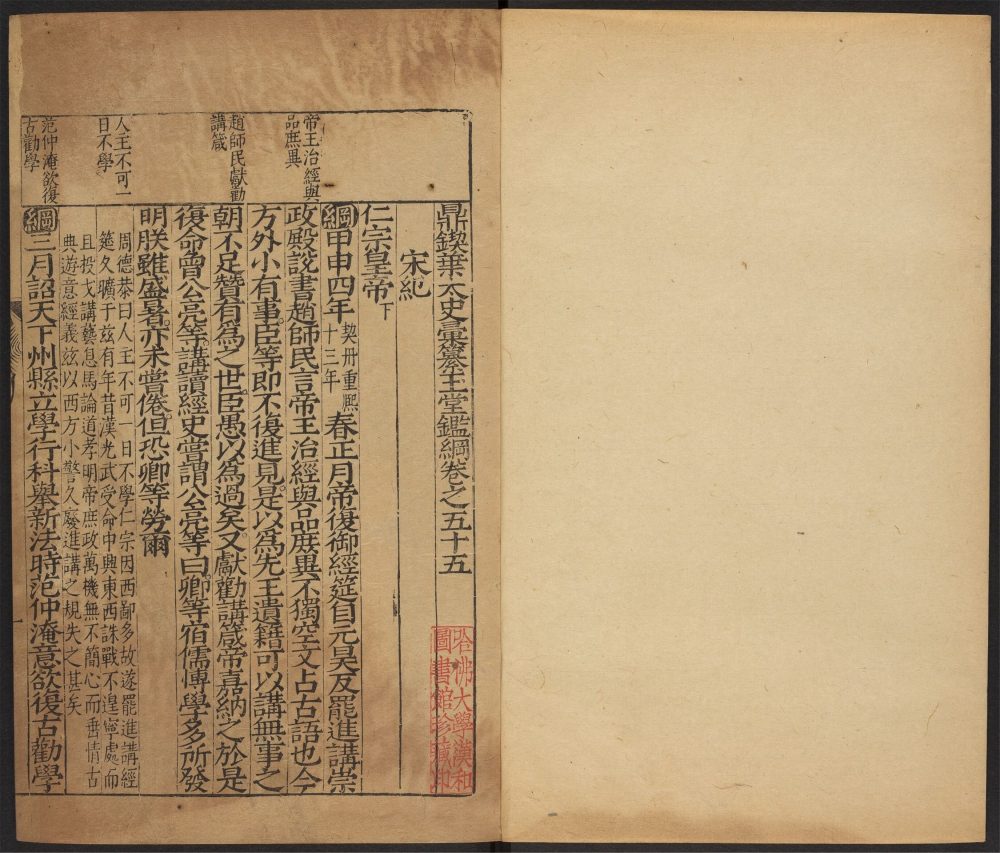 鼎鍥葉太史彙纂玉堂鑑綱卷之五十五
宋紀
仁宗皇帝下
綱甲申四年契丹重熙十三年春正月帝復御經筵自元昊反罷進講崇
政殿說書趙師民言帝王治經與品庶異不獨空文占古語也今
方外小有事臣等即不復進見是以為先王遺籍可以講無事之
朝不足贊有為之世臣愚以為過矣又獻勸講箴帝嘉納之於是
復命曾公亮等講讀經史嘗謂公亮等曰卿等宿儒博學多所發
明朕雖盛暑亦未嘗倦但恐卿等勞爾
周德恭曰人主不可一日不學仁宗因西鄙多故遂罷進講經
筵久曠于茲有年昔漢光武受命中興東西誅戰不遑寧處而
且投戈講藝息馬論道孝明帝庶政萬機無不簡心而垂情古
典遊意經義茲以西方小警久廢進講之規失之甚矣
綱三月詔天下州縣立學行科舉新法時范仲淹意欲復古勸學
帝王治經與
品庶異
趙師民獻勸
講箴
人主不可一
日不學
范仲淹欲復
古勸學
哈佛大學漢和
圖書館珍藏印